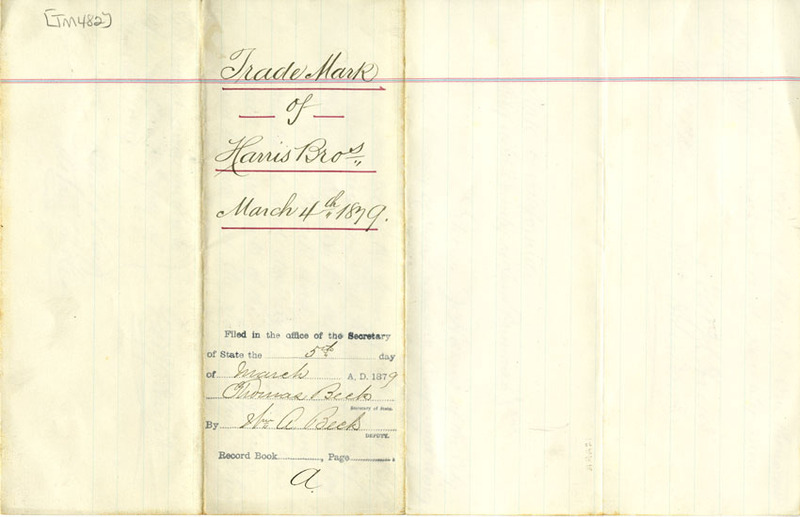 [TM482]
Trade Mark
of
Harris Bros.
March 4th 1879.
Filed in the office of the Secretary
of State the 5th day
of March A, D. 1879
Thomas Beck
Secretary of State.
By Wm A Beck
DEPUTY.
Record Book , Page
A.